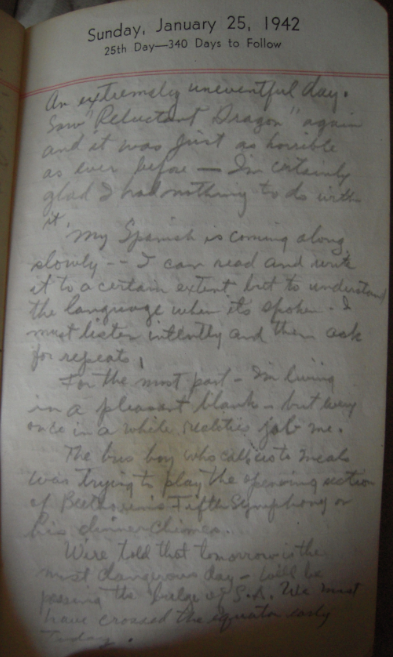 Sunday, January 25, 1942
25th Day—340 Days to Follow
An extremely uneventful day.
Saw "Reluctant Dragon" again
and it was just as horrible
as ever before — I'm certainly
glad I had nothing to do with
it
My Spanish is coming along
slowly -- I can read and write
it to a certain extent but to understand
the language when it's spoken - I
must listen intently and then ask
for repeats.
For the most part - I'm living
in a pleasant blank - but every
once in a while realities jab me.
The bus boy who calls us to meals
was trying to play the opening section
of Beethoven's Fifth Symphony on
his dinner chimes.
We're told that tomorrow is the
most dangerous day - will be
passing the bulge of S.A. We must
have crossed the equator early
today.